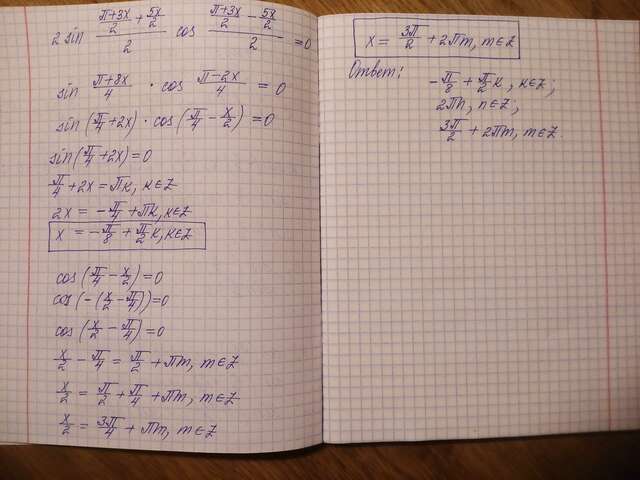 2 sin ((π+3x)/2 + 5x/2)/2 cos ((π+3x)/2 − 5x/2)/2 = 0
sin (π+8x)/4 · cos (π−2x)/4 = 0
sin(π/4 + 2x) · cos(π/4 − x/2) = 0
sin(π/4 + 2x) = 0
π/4 + 2x = πк, к∈Z
2x = −π/4 + πк, к∈Z
x = −π/8 + π/2 к, к∈Z
cos(π/4 − x/2) = 0
cos(−(x/2 − π/4)) = 0
cos(x/2 − π/4) = 0
x/2 − π/4 = π/2 + πm, m∈Z
x/2 = π/2 + π/4 + πm, m∈Z
x/2 = 3π/4 + πm, m∈Z
x = 3π/2 + 2πm, m∈Z
Ответ:
−π/8 + π/2 к, к∈Z;
2πn, n∈Z;
3π/2 + 2πm, m∈Z.